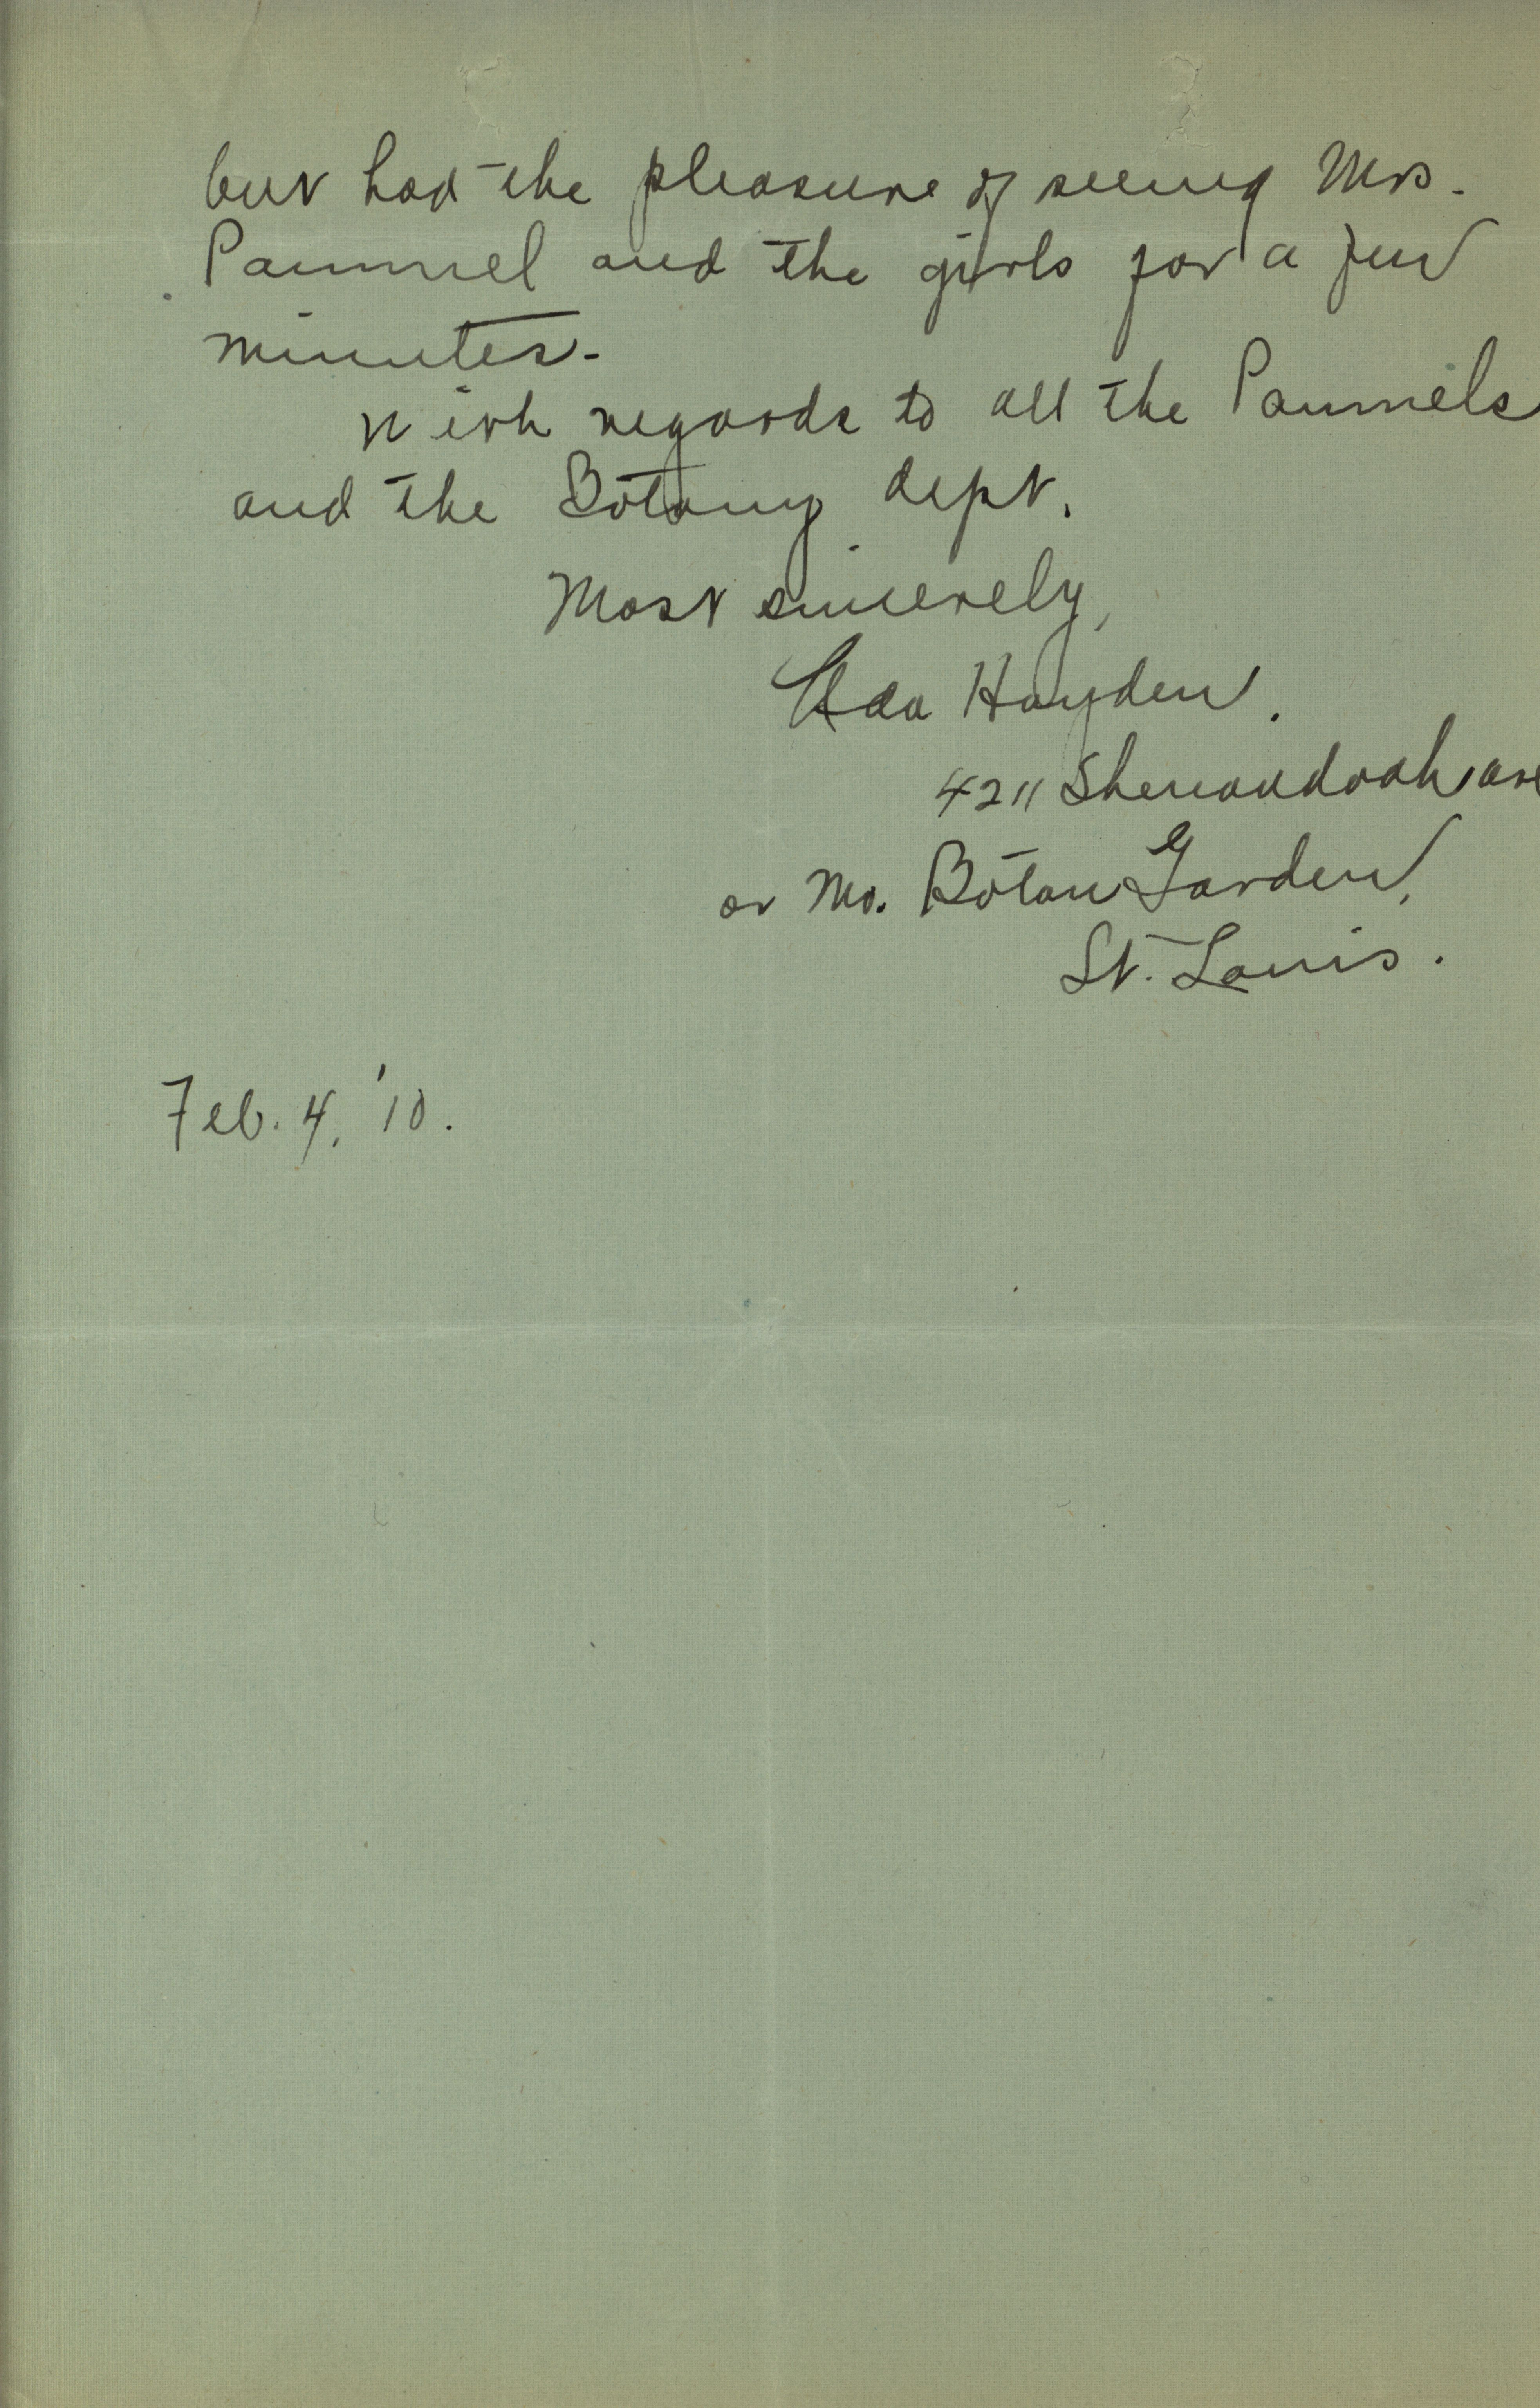 but had the pleasure of seeing Mrs.
Pammel and the girls for a few
minutes.
With regards to all the Pammels
and the Botany dept.
Most sincerely,
Ada Hayden.
4211 Shenandoah ave
or Mo. Botan Garden,
St. Louis.
Feb. 4, '10.